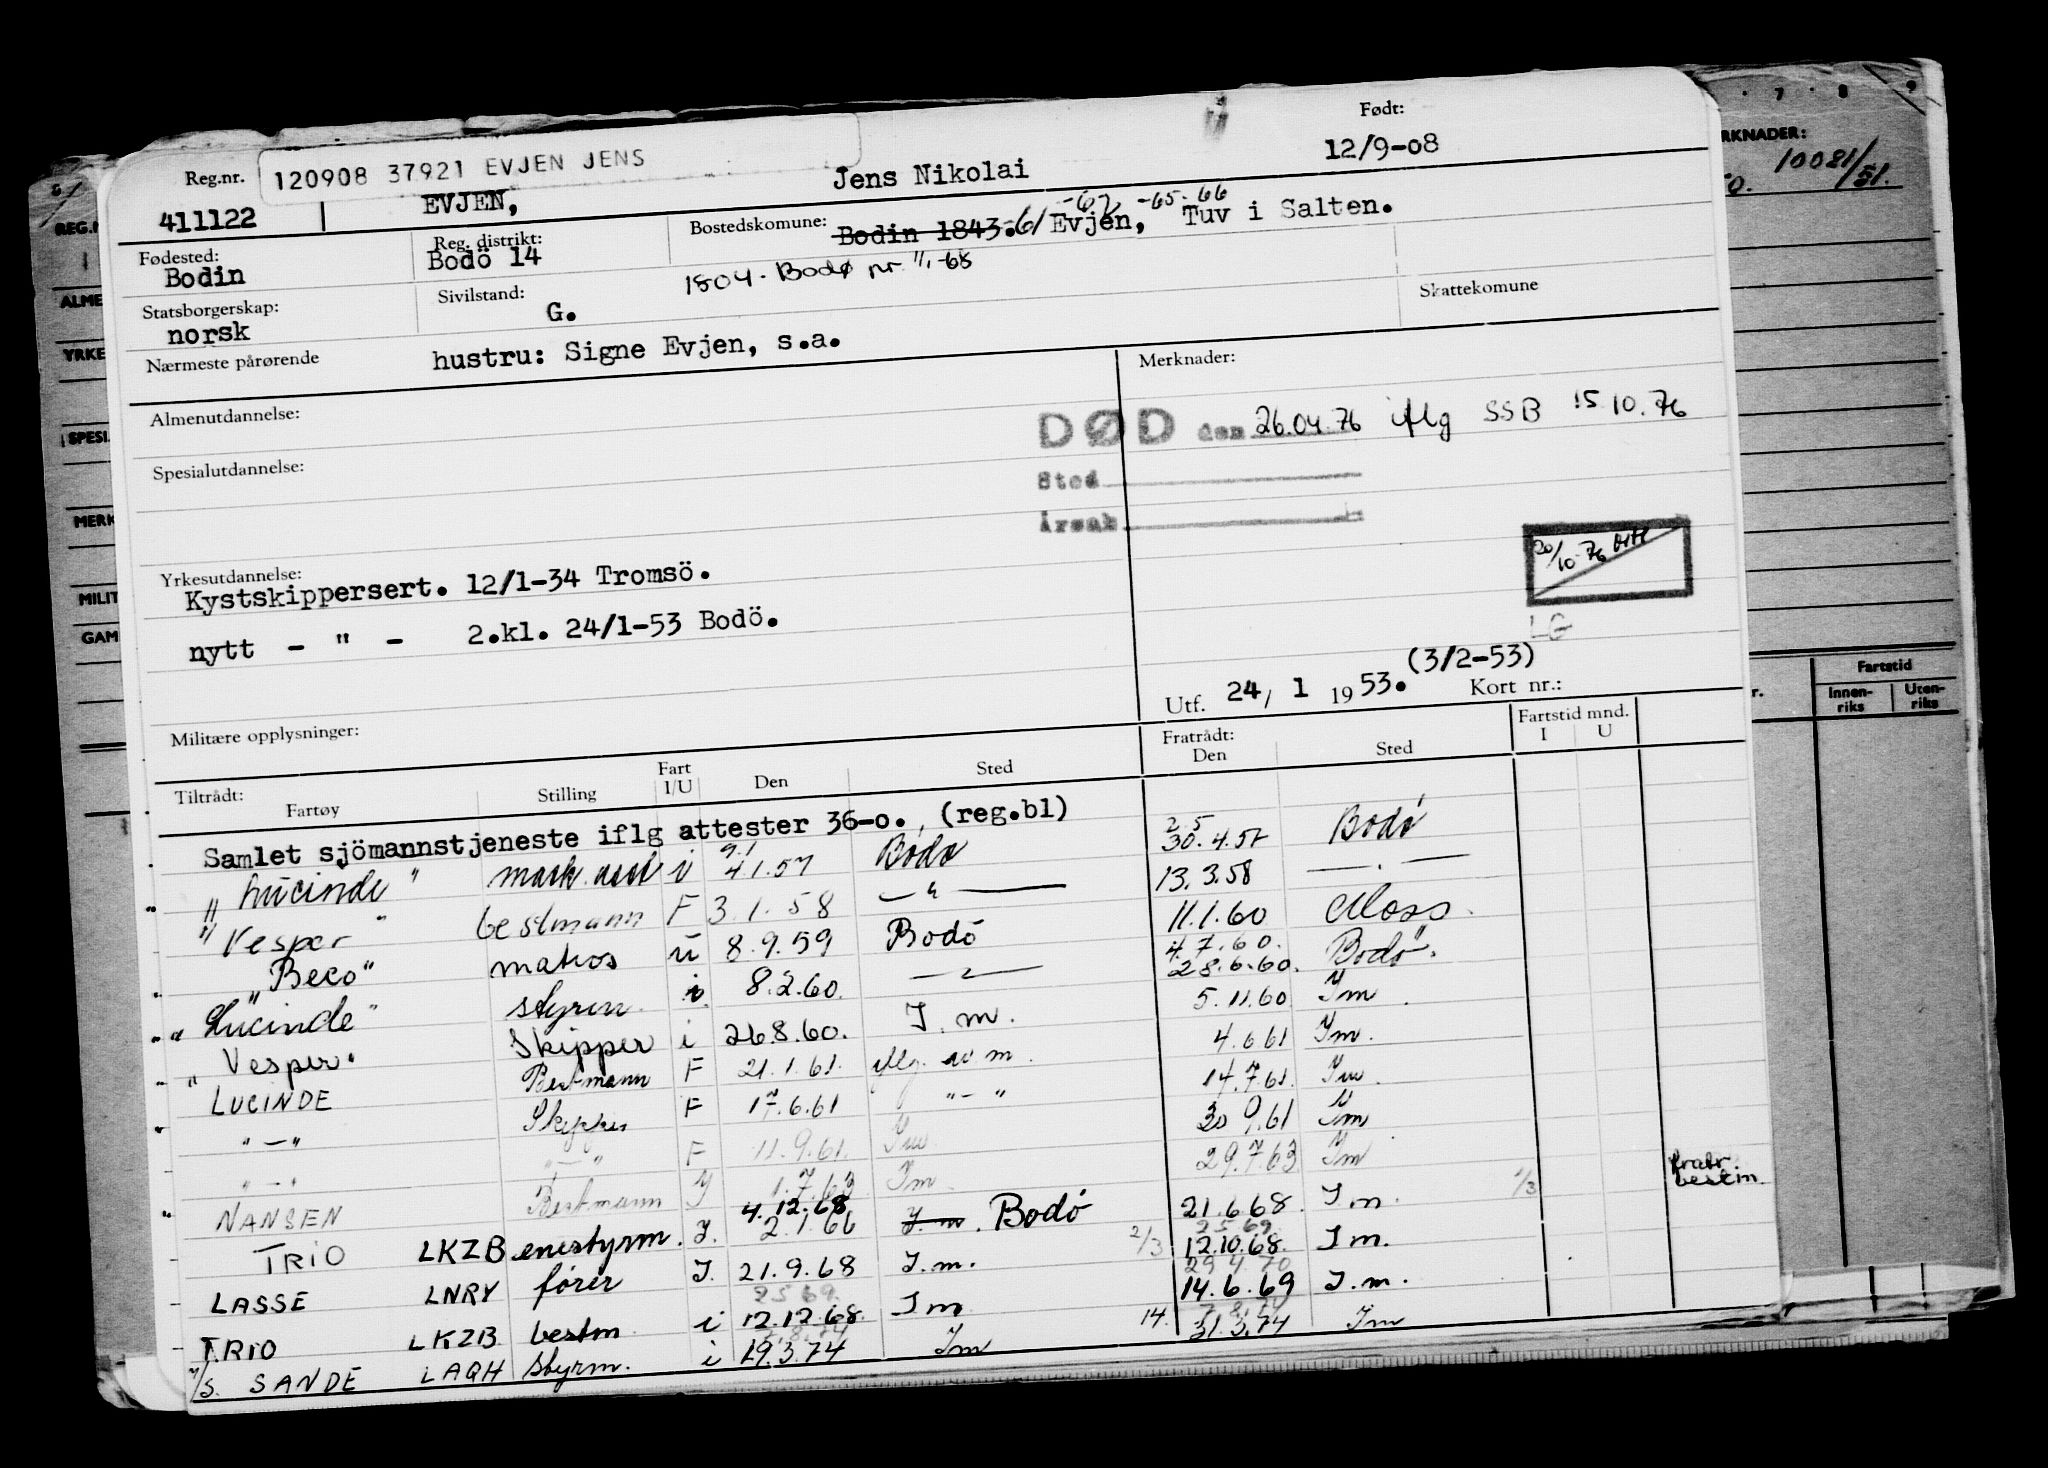 Reg.nr. 120908 37921 EVJEN JENS
Født:
411122 EVJEN, Jens Nikolai 12/9-08
Fødested: Bodin
Reg. distrikt: Bodö 14
Bostedskomune: Bodin 1843.-61 -62 -65-66 Evjen, Tuv i Salten.
1804 - Bodø pr 1/1-68
Statsborgerskap: norsk
Sivilstand: G.
Skattekomune
Nærmeste pårørende hustru: Signe Evjen, s.a.
Merknader:
Almenutdannelse:
DØD den 26.04.76 iflg SSB 15 10.76
Spesialutdannelse:
Sted
Årsak
20/10-76
LG
Yrkesutdannelse:
Kystskippersert. 12/1-34 Tromsö.
nytt - " - 2.kl. 24/1-53 Bodö.
(3/2-53)
Utf. 24, 1 1953. Kort nr.:
Militære opplysninger:
Tiltrådt: Fartøy Stilling Fart I/U Den Sted Fratrådt: Den Sted Fartstid mnd. I U
Samlet sjömannstjeneste iflg attester 36-o., (reg.bl)
"Lucinde" mask. asst i 4.1.57 Bodø 30.4.57 Bodø
"Vesper" bestmann F 3.1.58 — " — 13.3.58 — . —
"Beco" matros u 8.9.59 Bodö 11.1.60 Moss.
"Lucinde" styrm. i 8.2.60. — " — 4.7.60. 28.6.60. Bodø.
"Vesper" Skipper i 26.8.60. I.m. 5.11.60 Im.
LUCINDE Bestmann F 21.1.61. iflg. av m. 4.6.61 Im.
" — " Skipper F 17.6.61 " — " 14.7.61. Im.
" — " " — " F 11.9.61. Im. 30.9.61 Im
NANSEN Bestmann I 1.7.63 Im. 29.7.63 Im
TRIO LKZB enestyrm. I. 4.12.68 2.1.66 I.m. Bodö 21.6.68. I m. 1/3 fratr. bestm.
LASSE LNRY fører I. 21.9.68 I.m. 2/3 25.69. 12.10.68. I m.
TRIO LKZB bestm i 25 69. 12.12.68. Im 29 4 70 14.6.69 I.m.
M/S. SANDE LAQH styrm. i 19.3.74 Im 14. 31.3.74 Im
RKNADER:
10081/51.
REG.N
ALME
YRKE
SPESI
MERK
MILIT
GAM
Fartstid
Innen-riks Uten-riks